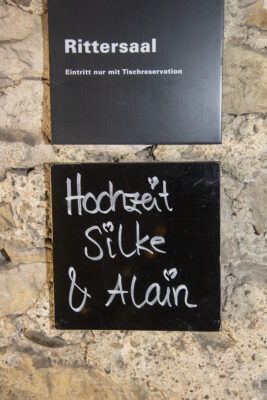 Rittersaal
Eintritt nur mit Tischreservation
Hochzeit
Silke
& Alain